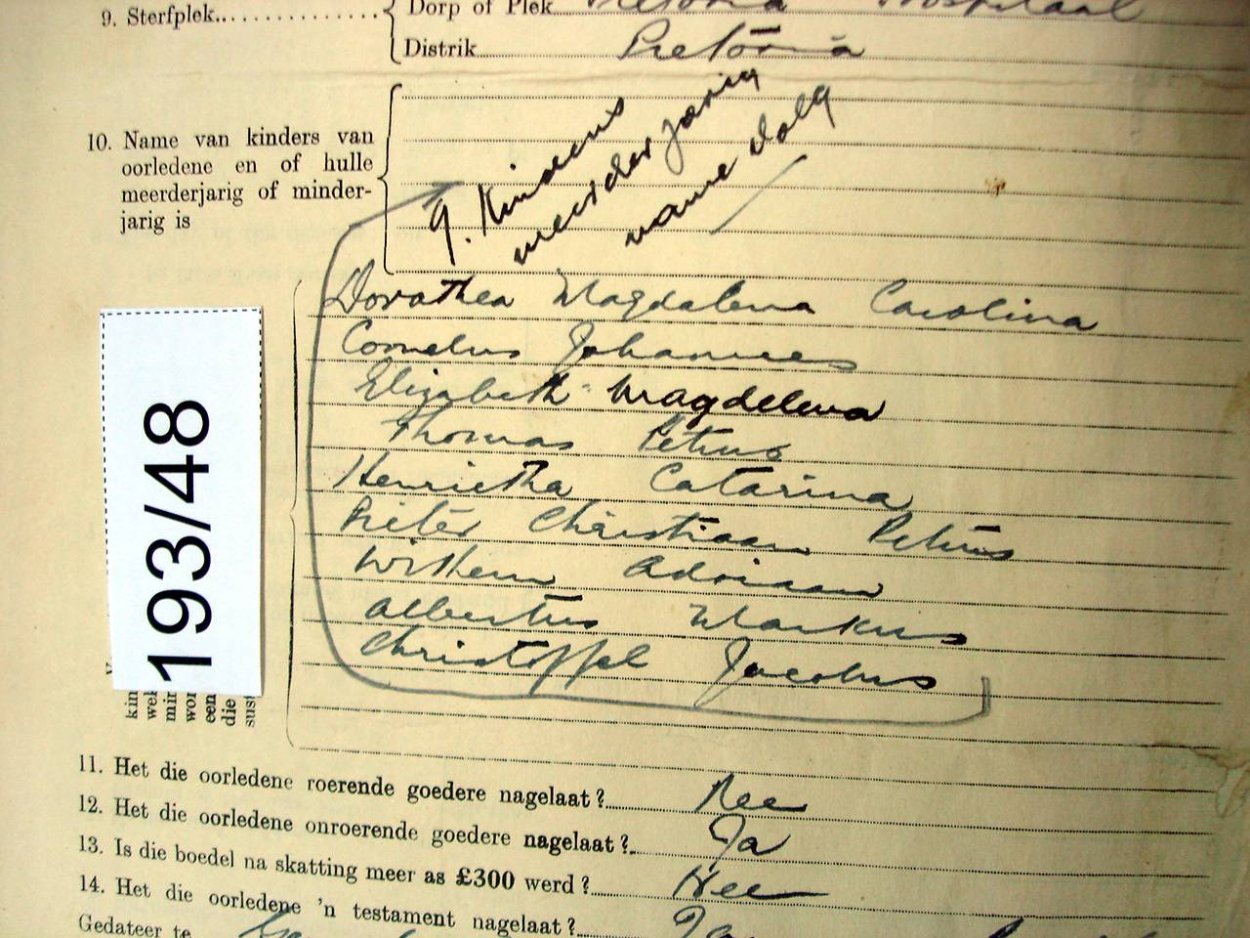 9. Sterfplek............ { Dorp of Plek Pretoria Hospitaal
Distrik Pretoria
10. Name van kinders van
oorledene en of hulle
meerderjarig of minder-
jarig is
9. Kinders
meerderjarig
name volg
Dorothea Magdalena Carolina
Cornelus Johannes
Elizabeth Magdelena
Thomas Petrus
Henrietha Catarina
Pieter Christiaan Petrus
Willem Adriaan
Albertus Markus
Christoffel Jacobus
193/48
kin
wel
min
wor
een
die
11. Het die oorledene roerende goedere nagelaat? Nee
12. Het die oorledene onroerende goedere nagelaat? Ja
13. Is die boedel na skatting meer as £300 werd? Nee
14. Het die oorledene 'n testament nagelaat? Ja
Gedateer te